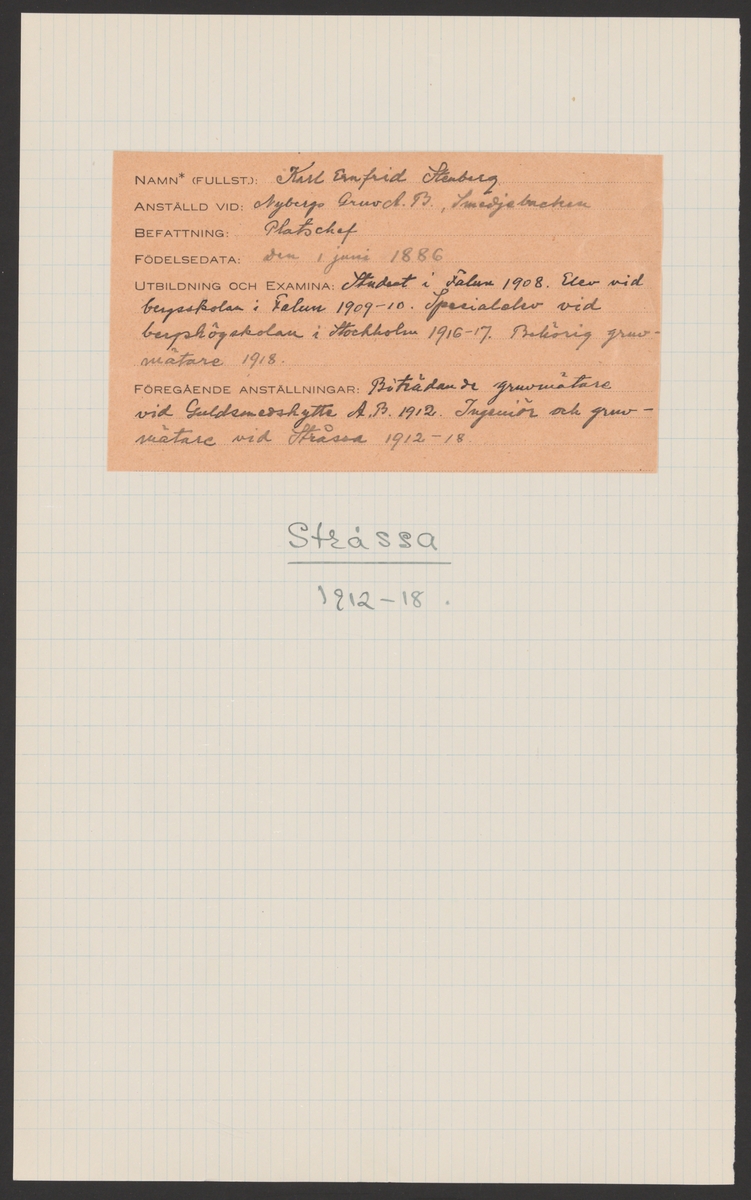 NAMN* (FULLST.): Karl Ernfrid Stenberg
ANSTÄLLD VID: Nybergs Gruv A. B., Smedjebacken
BEFATTNING: Platschef
FÖDELSEDATA: den 1 juni 1886
UTBILDNING OCH EXAMINA: Student i Falun 1908. Elev vid
bergsskolan i Falun 1909-10. Specialelev vid
bergshögskolan i Stockholm 1916-17. Behörig gruv-
mätare 1918.
FÖREGÅENDE ANSTÄLLNINGAR: Biträdande gruvmätare
vid Guldsmedshytte A.B. 1912. Ingeniör och gruv-
mätare vid Stråssa 1912-18.
Stråssa
1912-18.